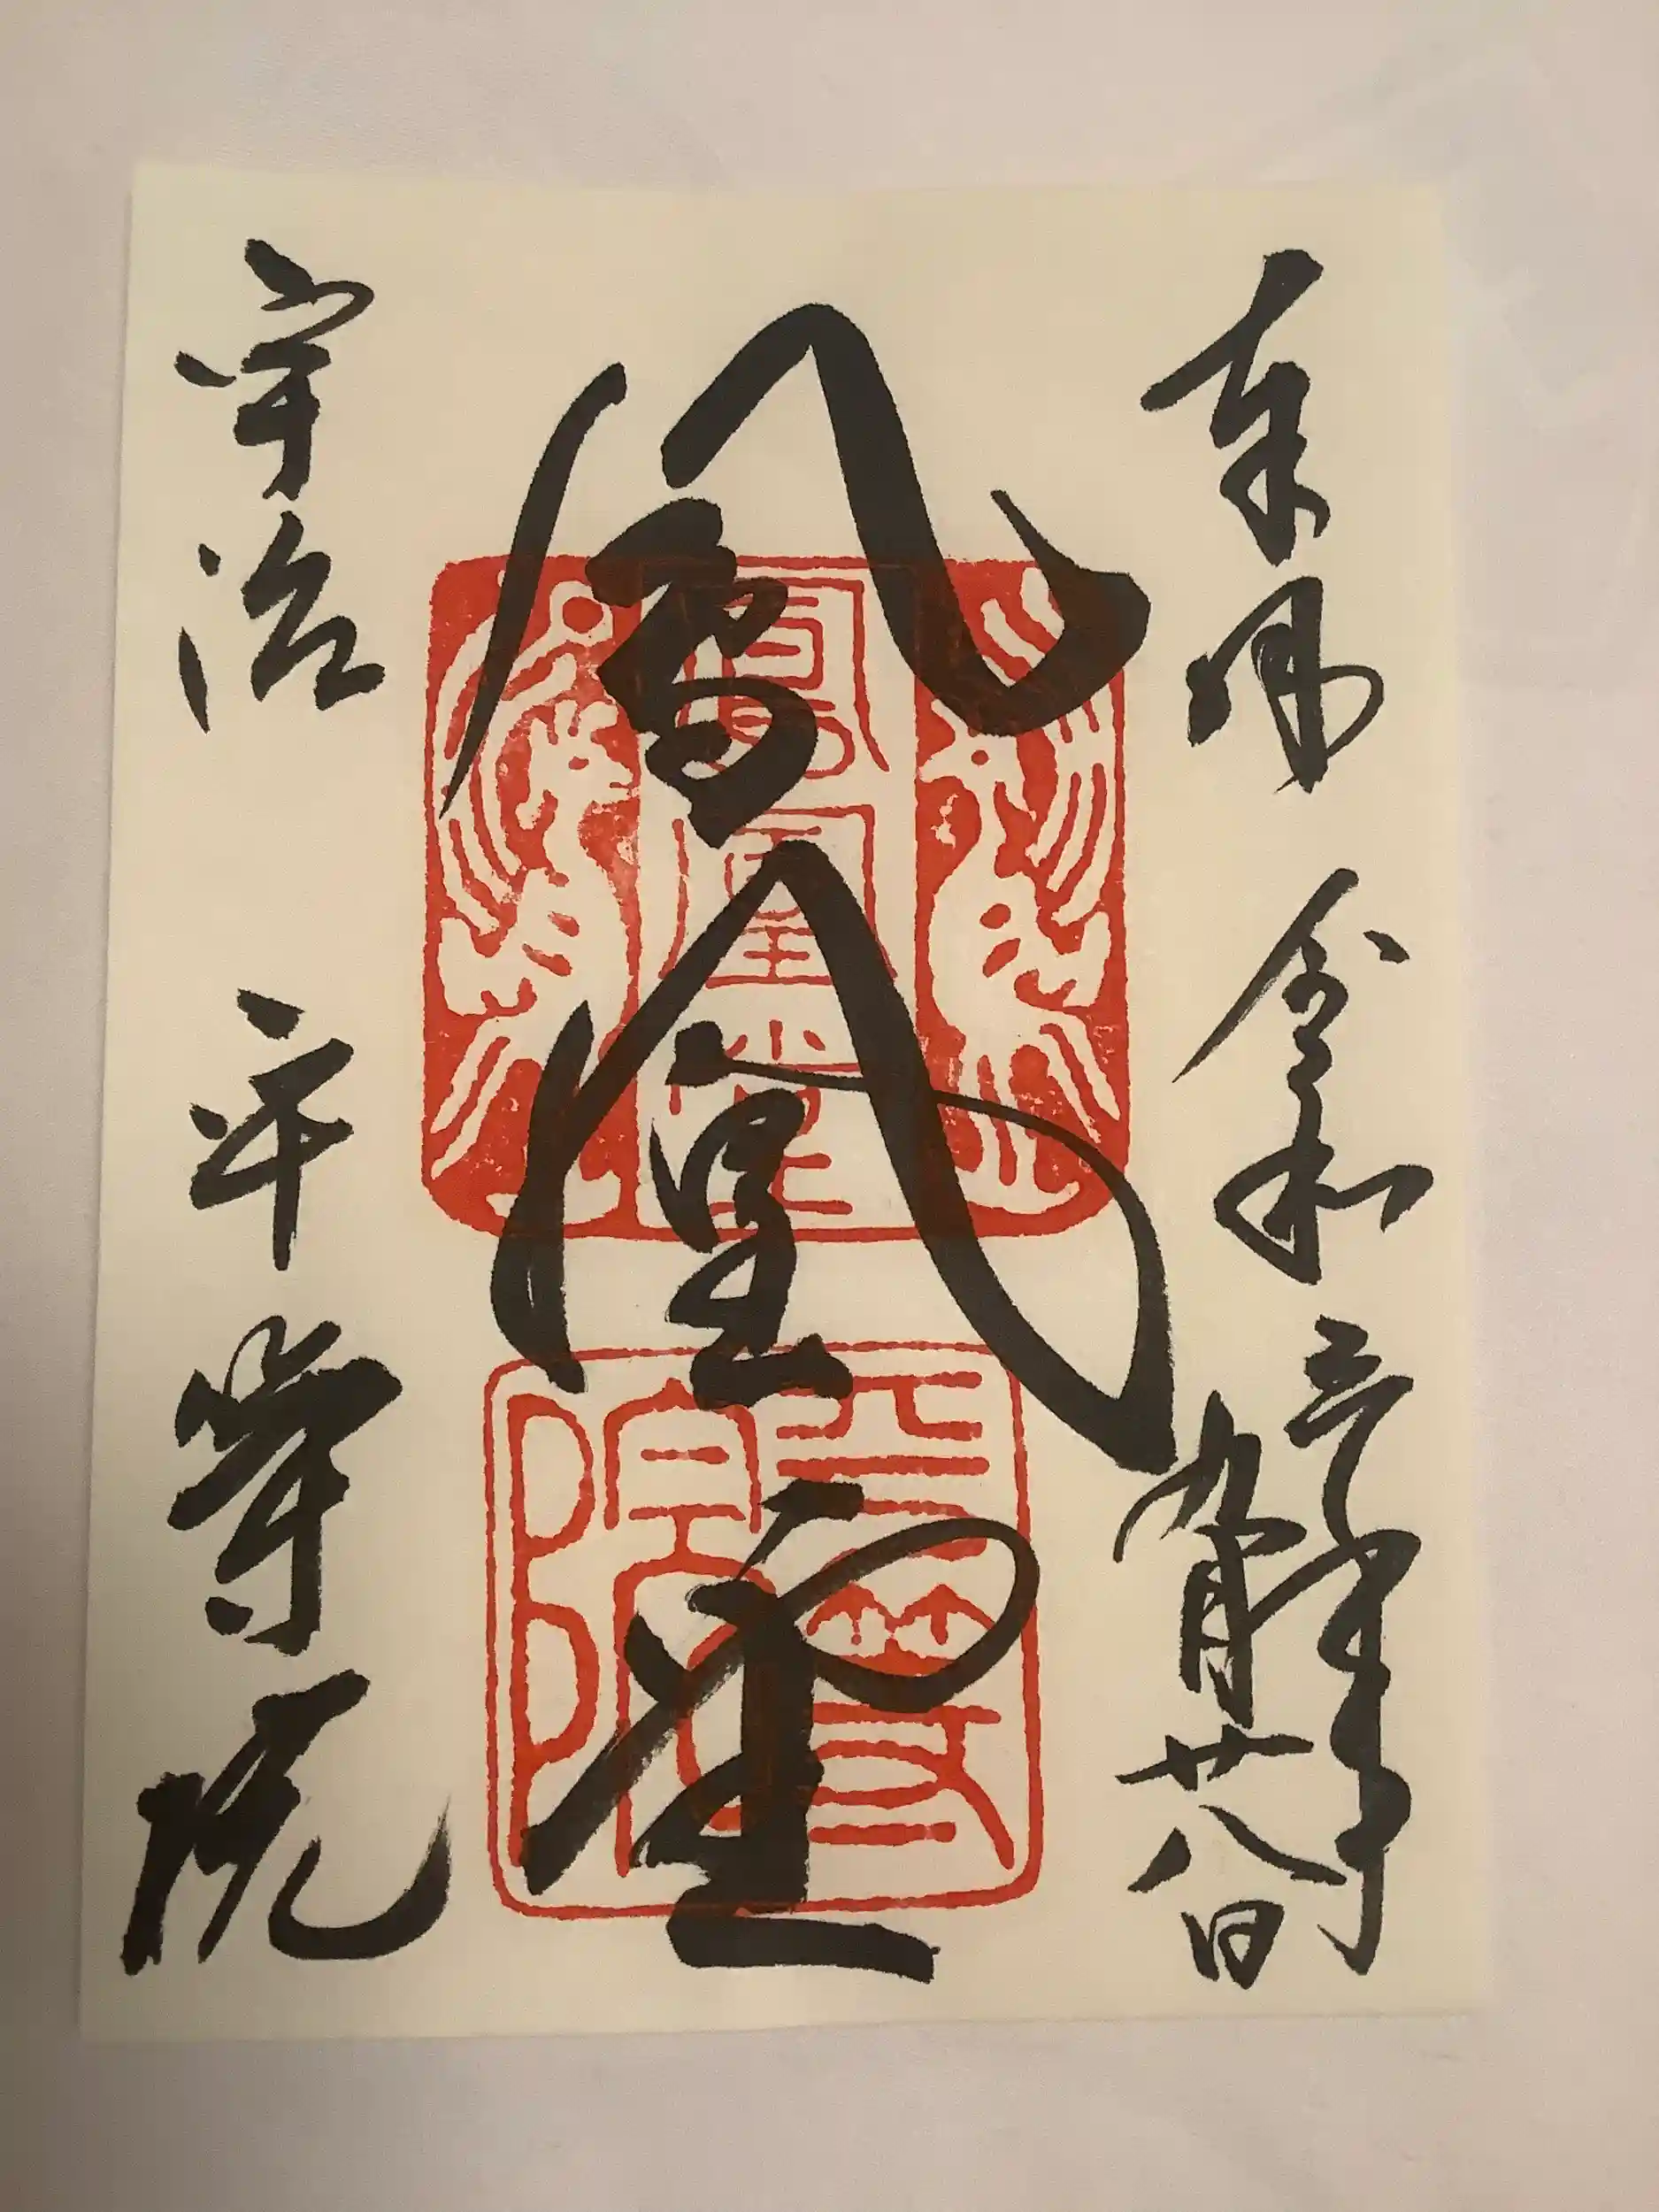 奉拝 令和年
九月廿八日
鳳凰堂
宇治 平等院
鳳凰堂
平等院